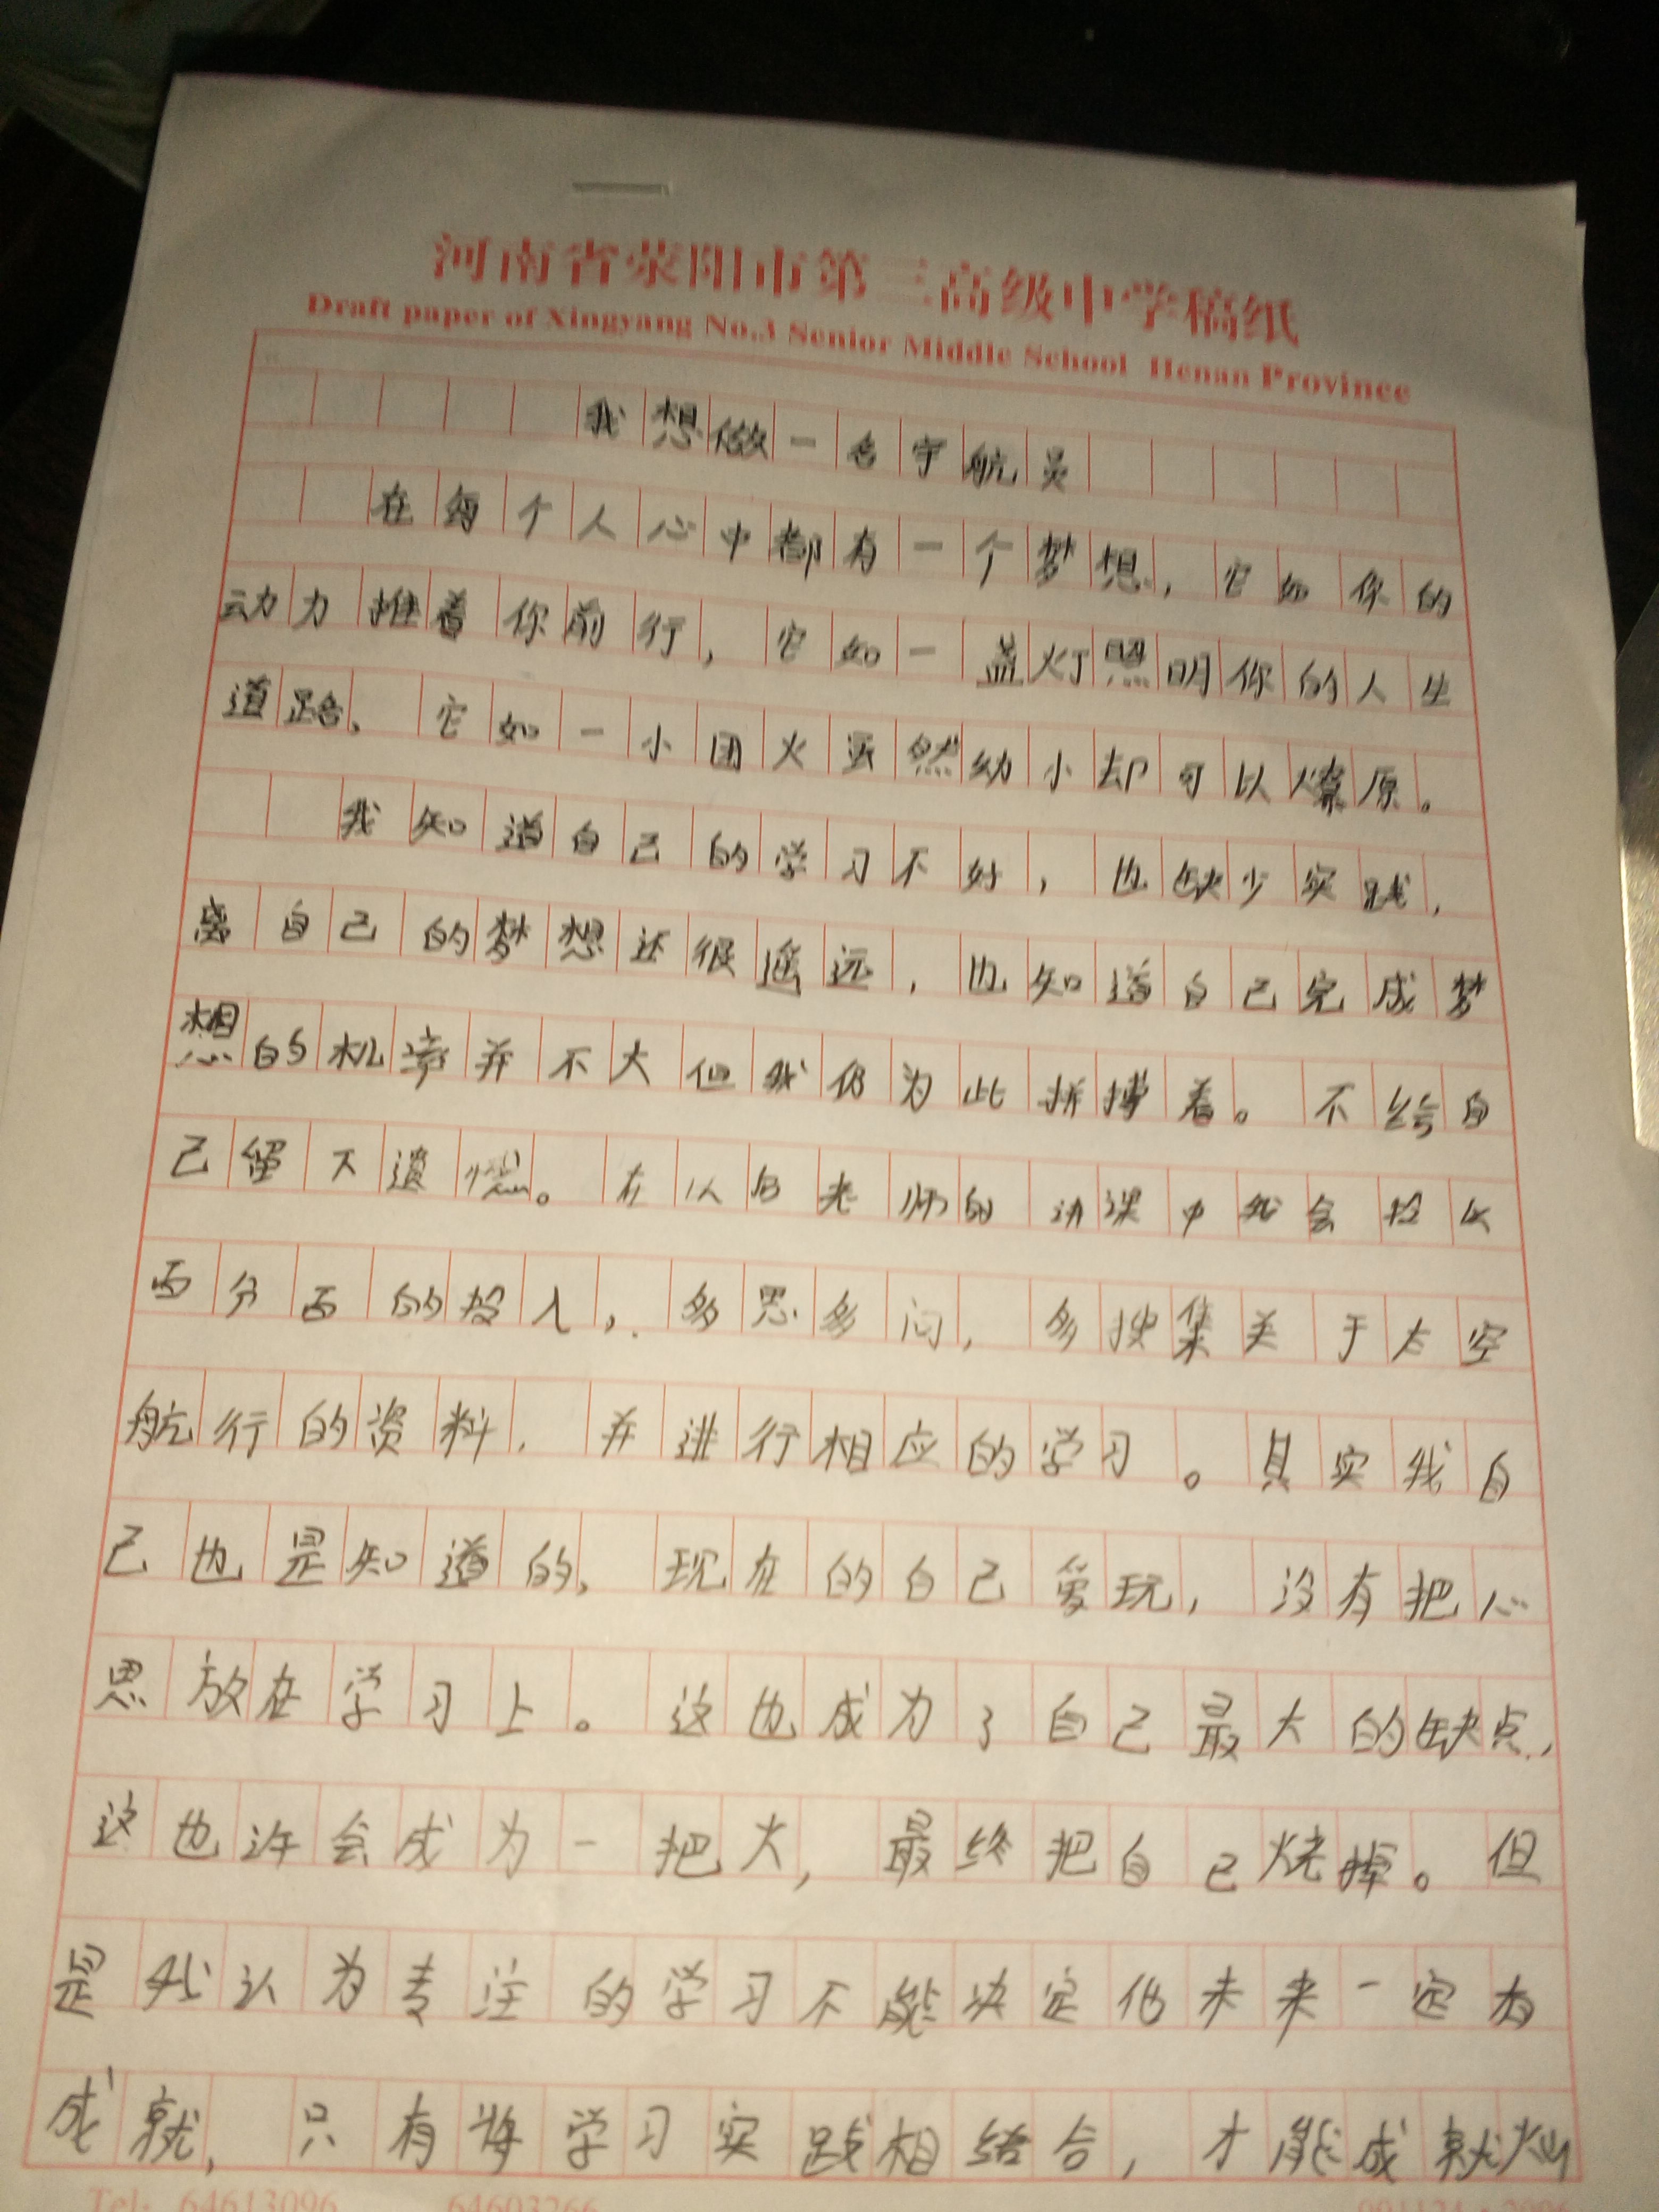 河南省荥阳市第三高级中学稿纸
Draft paper of Xingyang No.3 Senior Middle School Henan Province
我想做一名宇航员
在每个人心中都有一个梦想，它如你的
动力推着你前行，它如一盏灯照明你的人生
道路、它如一小团火虽然幼小却可以燎原。
我知道自己的学习不好，也缺少实践，
离自己的梦想还很遥远，也知道自己完成梦
想的机率并不大但我仍为此拼搏着。不给自
己留下遗憾。在以后老师的讲课中我会投以
百分百的投入，多思多问，多搜集关于太空
航行的资料，并进行相应的学习。其实我自
己也是知道的，现在的自己爱玩，没有把心
思放在学习上。这也成为了自己最大的缺点，
这也许会成为一把火，最终把自己烧掉。但
是我认为专注的学习不能决定他未来一定有
成就，只有将学习实践相结合，才能成就灿
Tel: 64613096 64603266